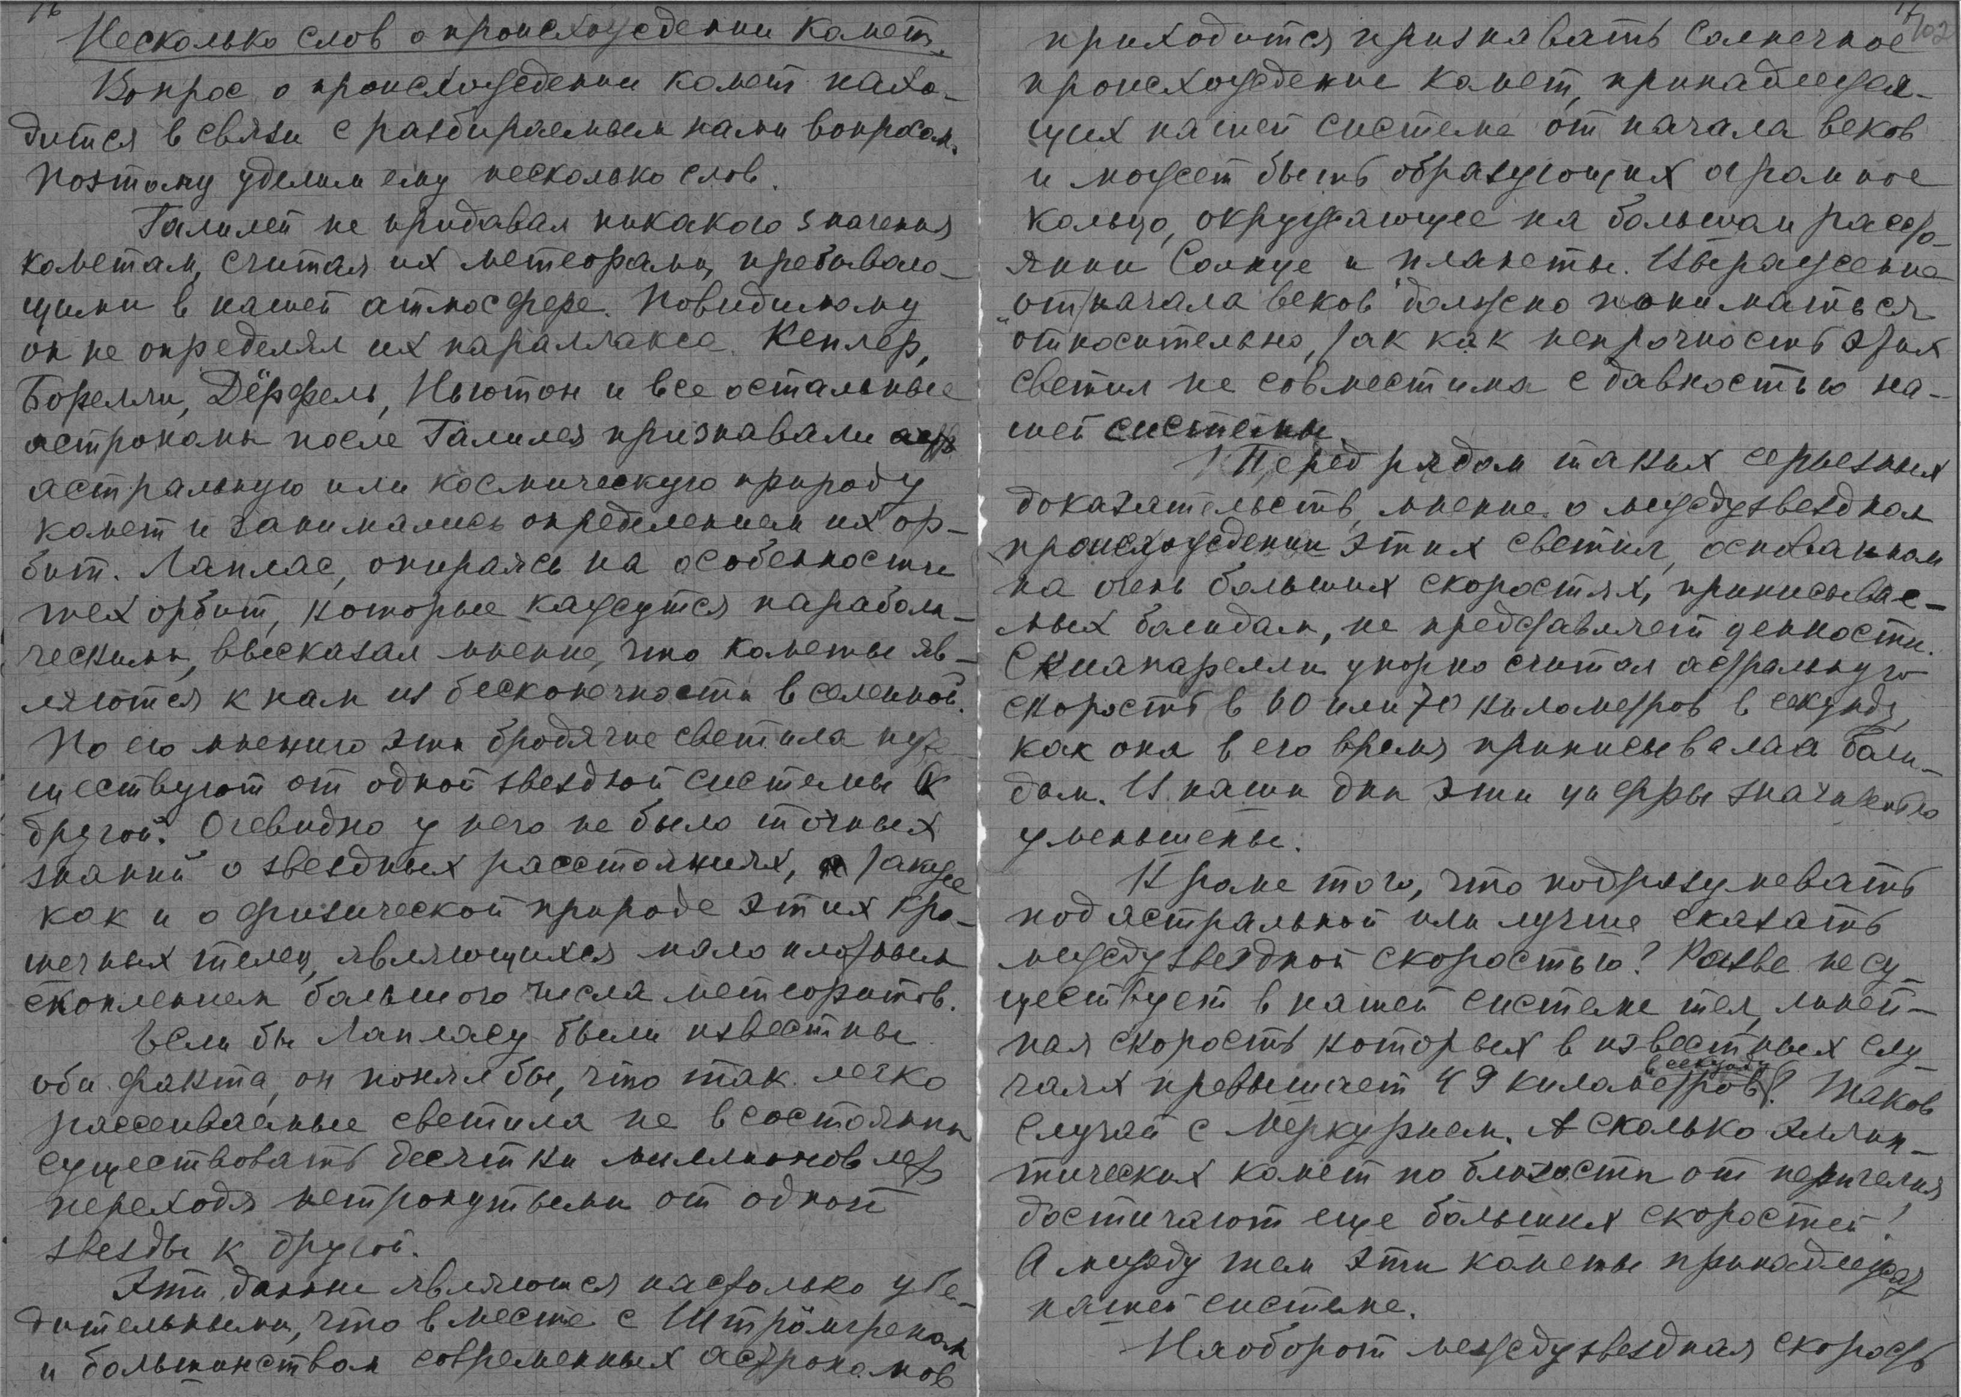 16
Несколько слов о происхождении комет.
Вопрос о происхождении комет нахо-
дится в связи с разбираемым нами вопросом.
Поэтому уделим ему несколько слов.
Галилей не придавал никакого значения
кометам, считая их метеорами, пребываю-
щими в нашей атмосфере. Повидимому
он не определял их параллакса. Кеплер,
Борелли, Дёрфель, Ньютон и все остальные
астрономы после Галилея признавали
астральную или космическую природу
комет и занимались определением их ор-
бит. Лаплас, опираясь на особенности
тех орбит, которые кажутся параболи-
ческими, высказал мнение, что кометы яв-
ляются к нам из бесконечности вселенной.
По его мнению эти бродячие светила путе-
шествуют от одной звездной системы к
другой. Очевидно у него не было точных
знаний о звездных расстояниях, а также
как и о физической природе этих кро-
шечных телец, являющихся мало плотным
скоплением большого числа метеоритов.
Если бы Лапласу были известны
оба факта, он понял бы, что так легко
рассеиваемые светила не в состоянии
существовать десятки миллионов лет
переходя нетронутыми от одной
звезды к другой.
Эти данные являются настолько убе-
дительными, что вместе с Штрёмгреном
и большинством современных астрономов
17
102
приходится признавать солнечное
происхождение комет, принадлежа-
щих нашей системе от начала веков
и может быть образующих огромное
кольцо, окружающее на большом рассто-
янии Солнце и планеты. Выражение
„от начала веков" должно пониматься
относительно, так как непрочность этих
светил не совместима с давностью на-
шей системы.
Перед рядом таких серьезных
доказательств, мнение о междузвездном
происхождении этих светил, основанном
на очень больших скоростях, приписывае-
мых болидам, не представляет ценности.
Скиапарелли упорно считал астральную
скорость в 60 или 70 километров в секунду,
как она в его время приписывалась боли-
дам. В наши дни эти цифры значительно
уменьшены.
Кроме того, что подразумевать
под астральной или лучше сказать
междузвездной скоростью? Разве не су-
ществует в нашей системе тел, линей-
ная скорость которых в известных слу-
чаях превышает 49 километров в секунду? Таков
случай с Меркурием. А сколько эллип-
тических комет по близости от перигелия
достигают еще больших скоростей!
А между тем эти кометы принадлежат
нашей системе.
Наоборот междузвездная скорость